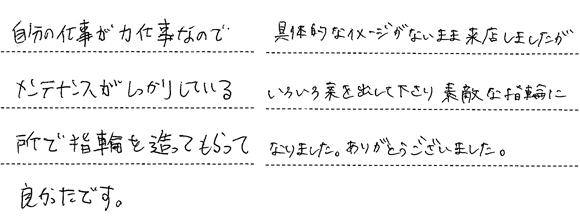 自分の仕事が力仕事なので
メンテナンスがしっかりしている
所で指輪を造ってもらって
良かったです。
具体的なイメージがないまま来店しましたが
いろいろ案を出して下さり素敵な指輪に
なりました。ありがとうございました。